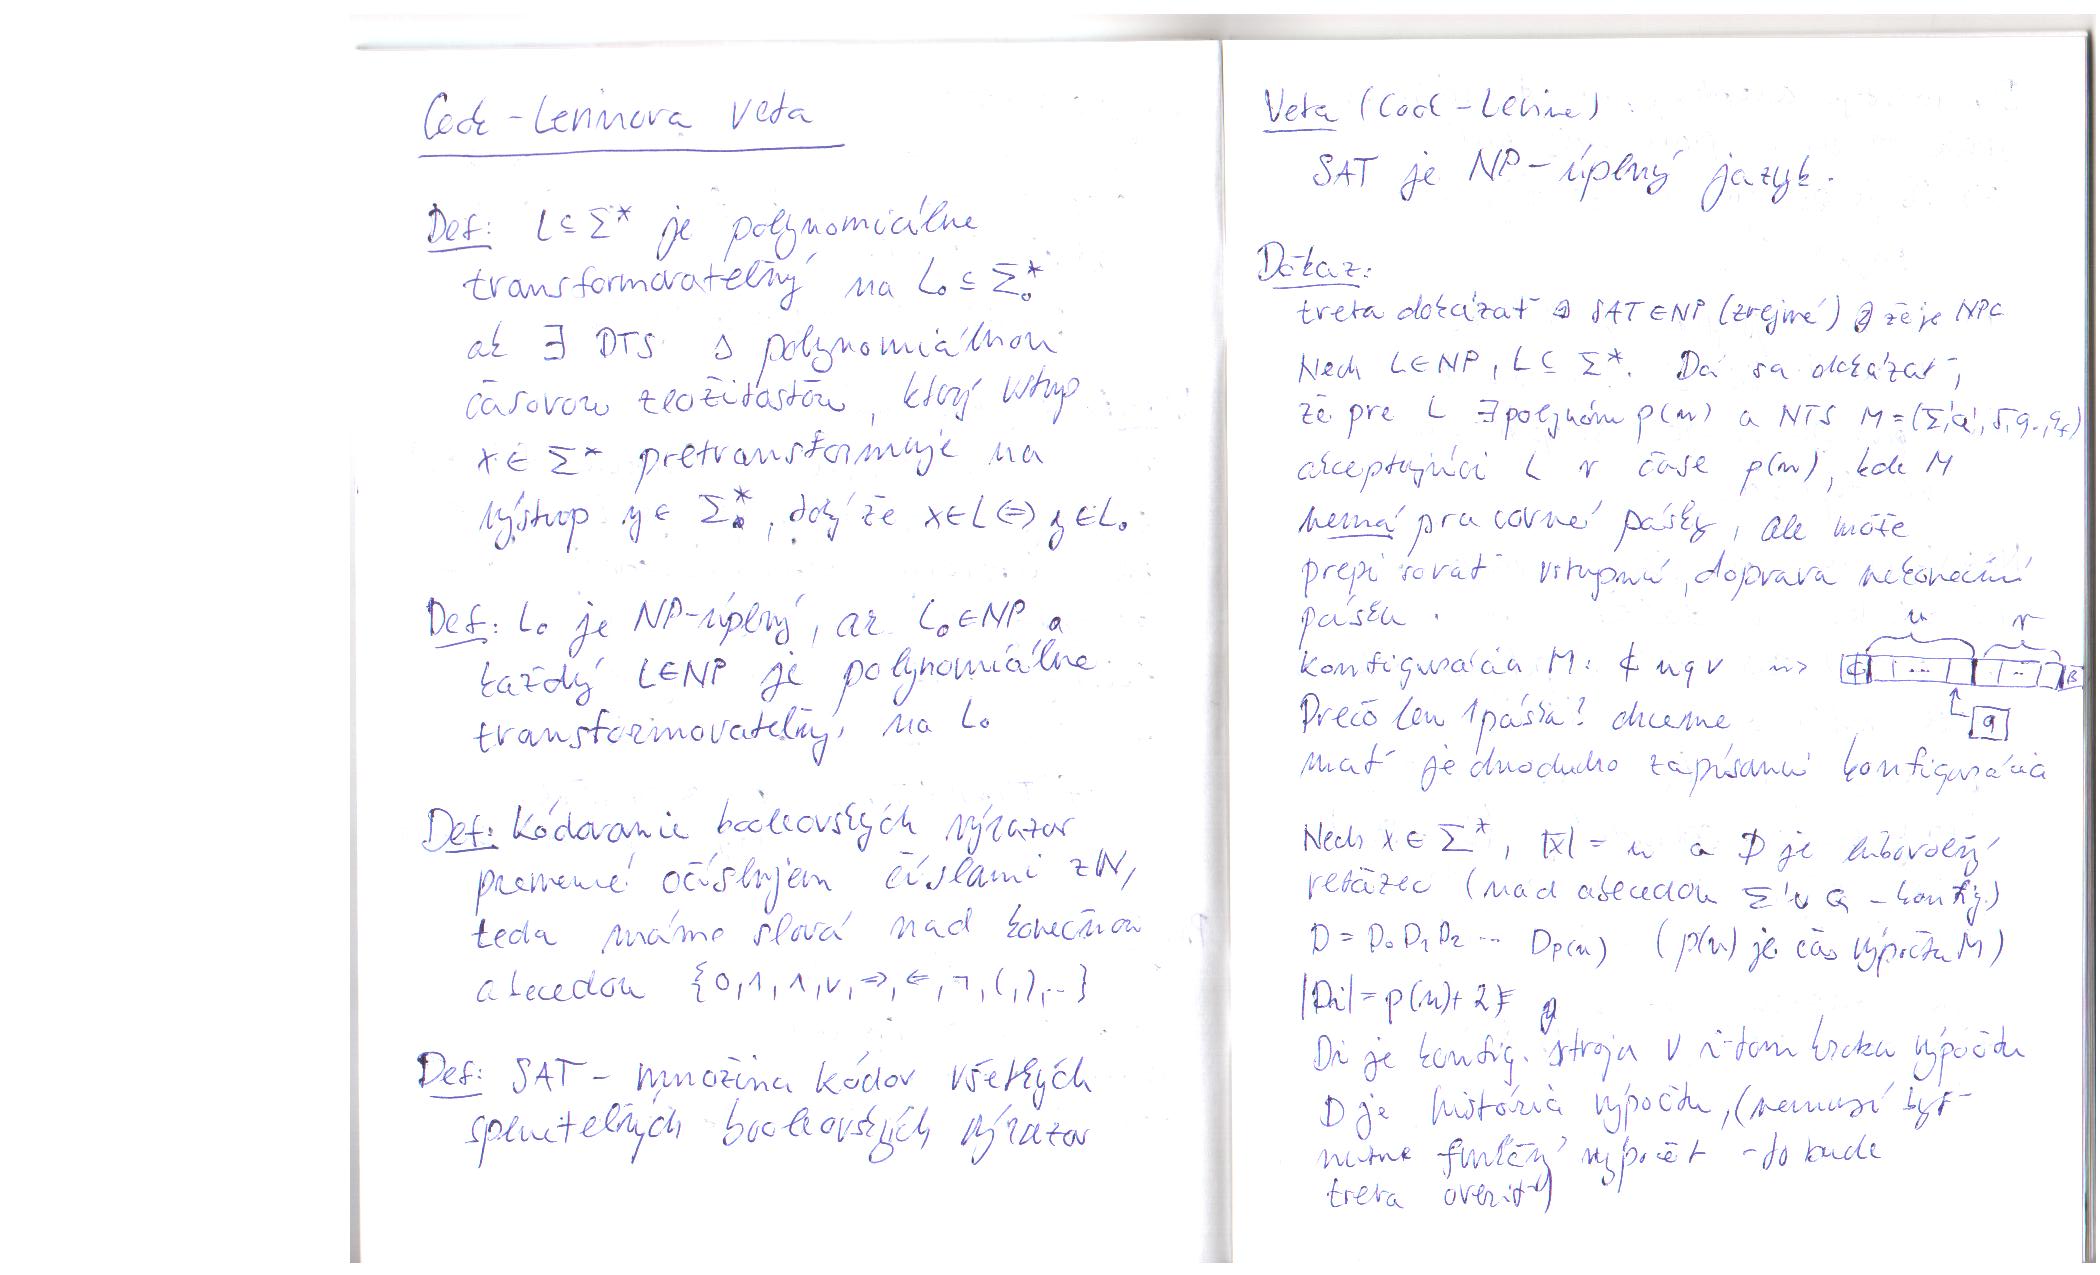 Cook-Levinova veta
Def: L ⊆ Σ* je polynomiálne
transformovateľný na L₀ ⊆ Σ₀*
ak ∃ DTS s polynomiálnou
časovou zložitosťou, ktorý vstup
x ∈ Σ* pretransformuje na
výstup y ∈ Σ₀*, taký že x∈L ⇔ y∈L₀
Def: L₀ je NP-úplný, ak L₀∈NP a
každý L∈NP je polynomiálne
transformovateľný na L₀
Def: Kódovanie booleovských výrazov
premenné očíslujem číslami z N,
teda máme slová nad konečnou
abecedou {0,1,∧,∨,⇒,⇐,¬,(,),..}
Def: SAT - množina kódov všetkých
splniteľných booleovských výrazov
Veta (Cook-Levine)
SAT je NP-úplný jazyk.
Dôkaz:
treba dokázať ① SAT∈NP (zrejmé) ② že je NPC
Nech L∈NP, L ⊆ Σ*. Dá sa dokázať,
že pre L ∃ polynóm p(n) a NTS M=(Σ',Q',δ,q₀,qf)
akceptujúci L v čase p(n), kde M
nemá pracovné pásky, ale môže
prepisovať vstupnú, doprava nekonečnú
pásku.
u v
konfigurácia M: ¢ u q v ~> ¢ ... .. B
Prečo len 1 páska? chceme q
mať jednoducho zápísanú konfiguráciu
Nech x ∈ Σ*, |x| = n a D je ľubovoľný
reťazec (nad abecedou Σ'∪Q - konfig.)
D = D₀D₁D₂ ... Dp(n) (p(n) je čas výpočtu M)
|Di| = p(n)+2
Di je konfig. stroja v i-tom kroku výpočtu
D je história výpočtu, (nemusí byť
nutne funkčný výpočet - to bude
treba overiť)